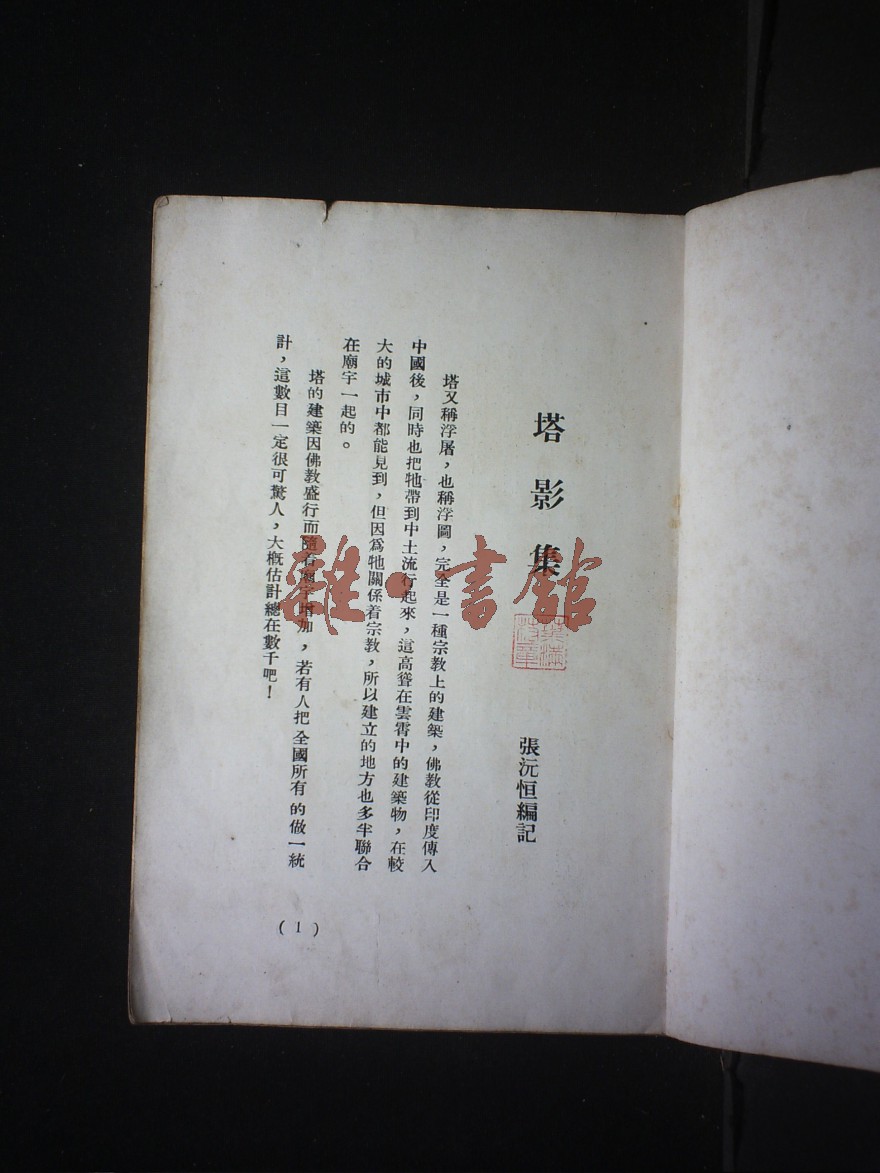 塔影集
張沅恒編記
塔又稱浮屠，也稱浮圖，完全是一種宗教上的建築，佛教從印度傳入
中國後，同時也把牠帶到中土流行起來，這高聳在雲霄中的建築物，在較
大的城市中都能見到，但因爲牠關係着宗教，所以建立的地方也多半聯合
在廟宇一起的。
塔的建築因佛教盛行而隨着廟宇增加，若有人把全國所有的做一統
計，這數目一定很可驚人，大槪估計總在數千吧！
(1)
雜·書館